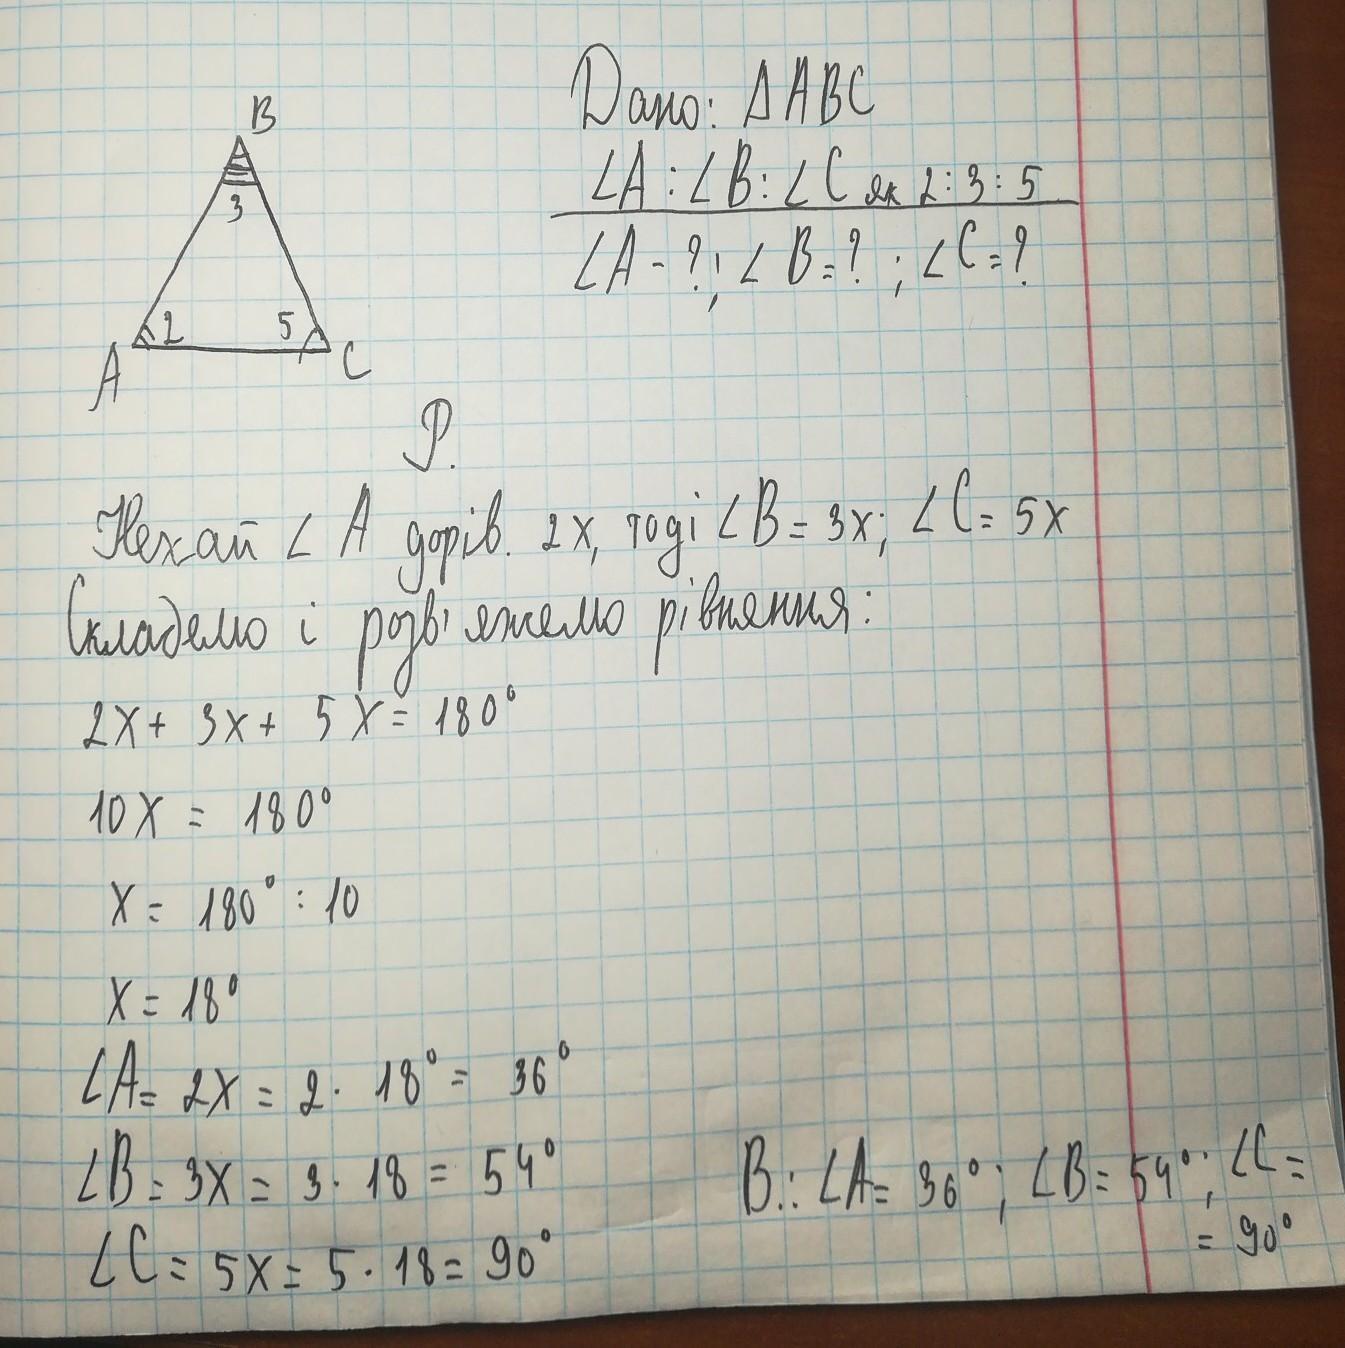 B
3
2
5
A
C
Дано: ΔABC
∠A : ∠B : ∠C як 2 : 3 : 5
∠A - ? ; ∠B = ? ; ∠C = ?
Р.
Нехай ∠A дорів. 2x, тоді ∠B = 3x; ∠C = 5x
Складемо і розв'яжемо рівняння:
2x + 3x + 5x = 180°
10x = 180°
x = 180° : 10
x = 18°
∠A = 2x = 2 · 18° = 36°
∠B = 3x = 3 · 18 = 54°
∠C = 5x = 5 · 18 = 90°
В.: ∠A = 36°; ∠B = 54°; ∠C =
= 90°